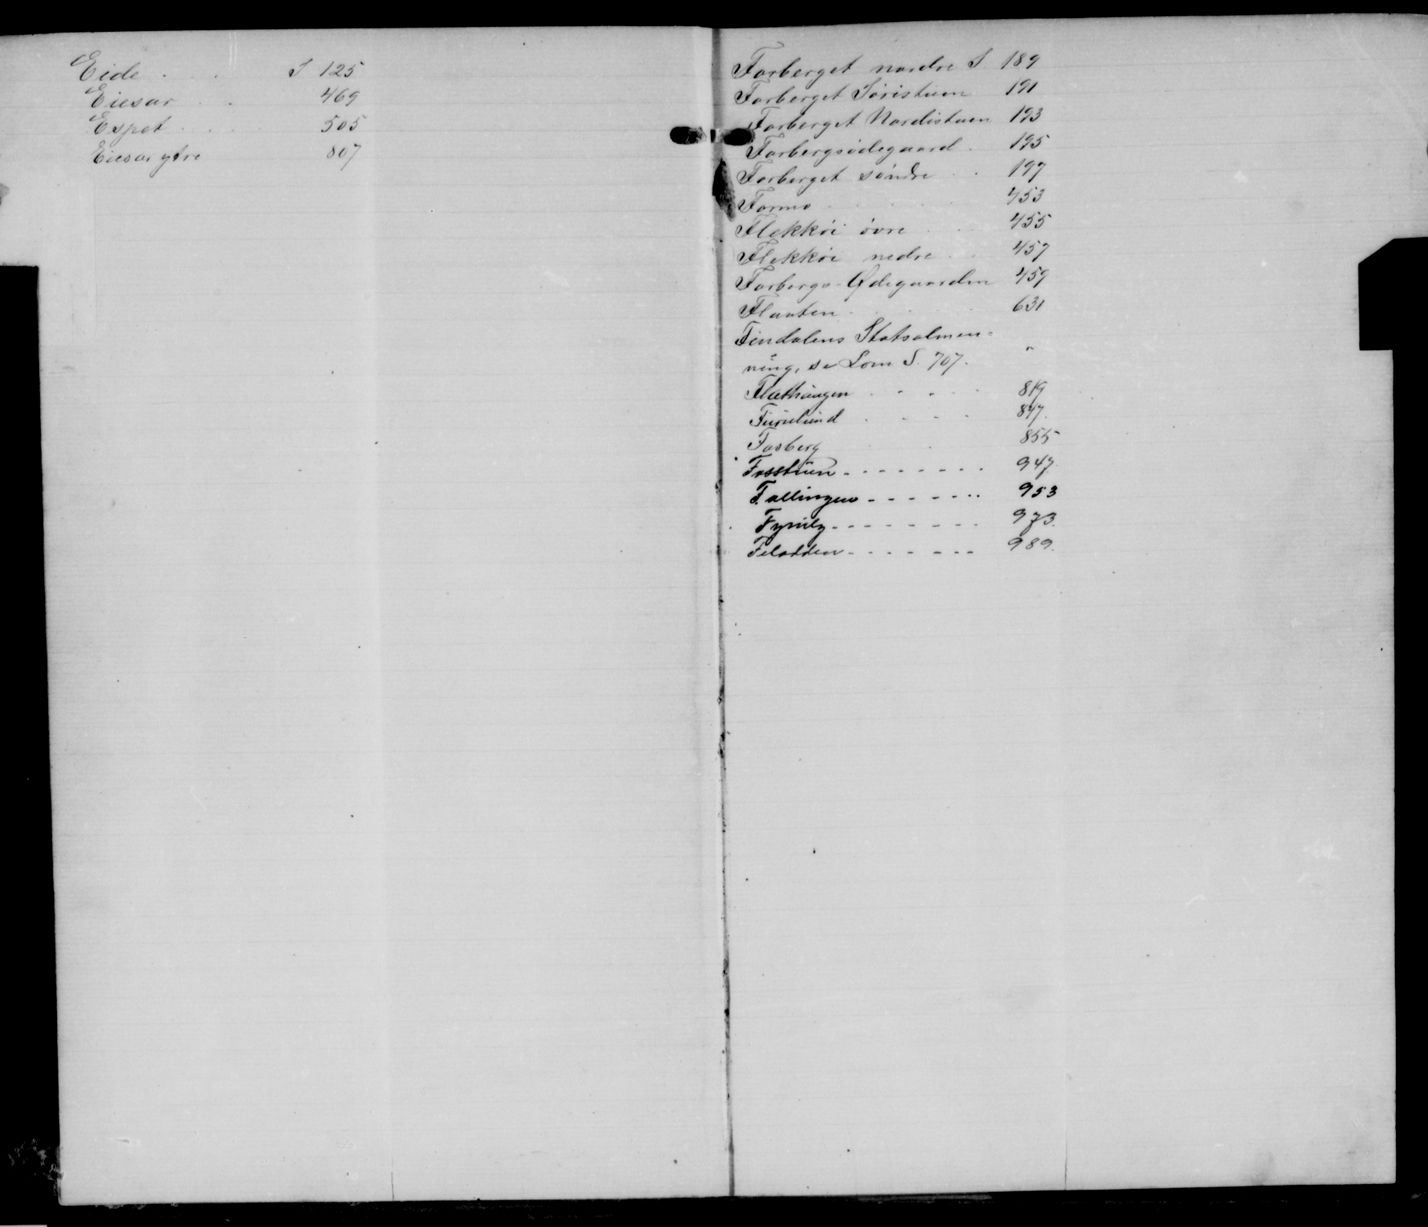 Eide . . . S 125
Eiesar . . 469
Espet . . . . 505
Eiesar ytre 807
Forberget nordre S 189
Forberget Söristuen 191
Forberget Nordistuen 193
Forbergsödegaard . 195
Forberget söndre . . 197
Formo . . . . . 453
Flekköi övre . . . 455
Flekköi nedre . . 457
Forbergs-Ødegaarden 459
Flaaten . . . . . 631
Findalens Statsalmen-
ning, se Lom S. 707. "
Flathaugen . . . . 819
Furulund . . . . 847.
Fosberg . . . 855
Fosstuen - - - - - - - 947.
Fallingen - - - - - - - 953
- - - - - - - 973.
- - - - - - - 989.